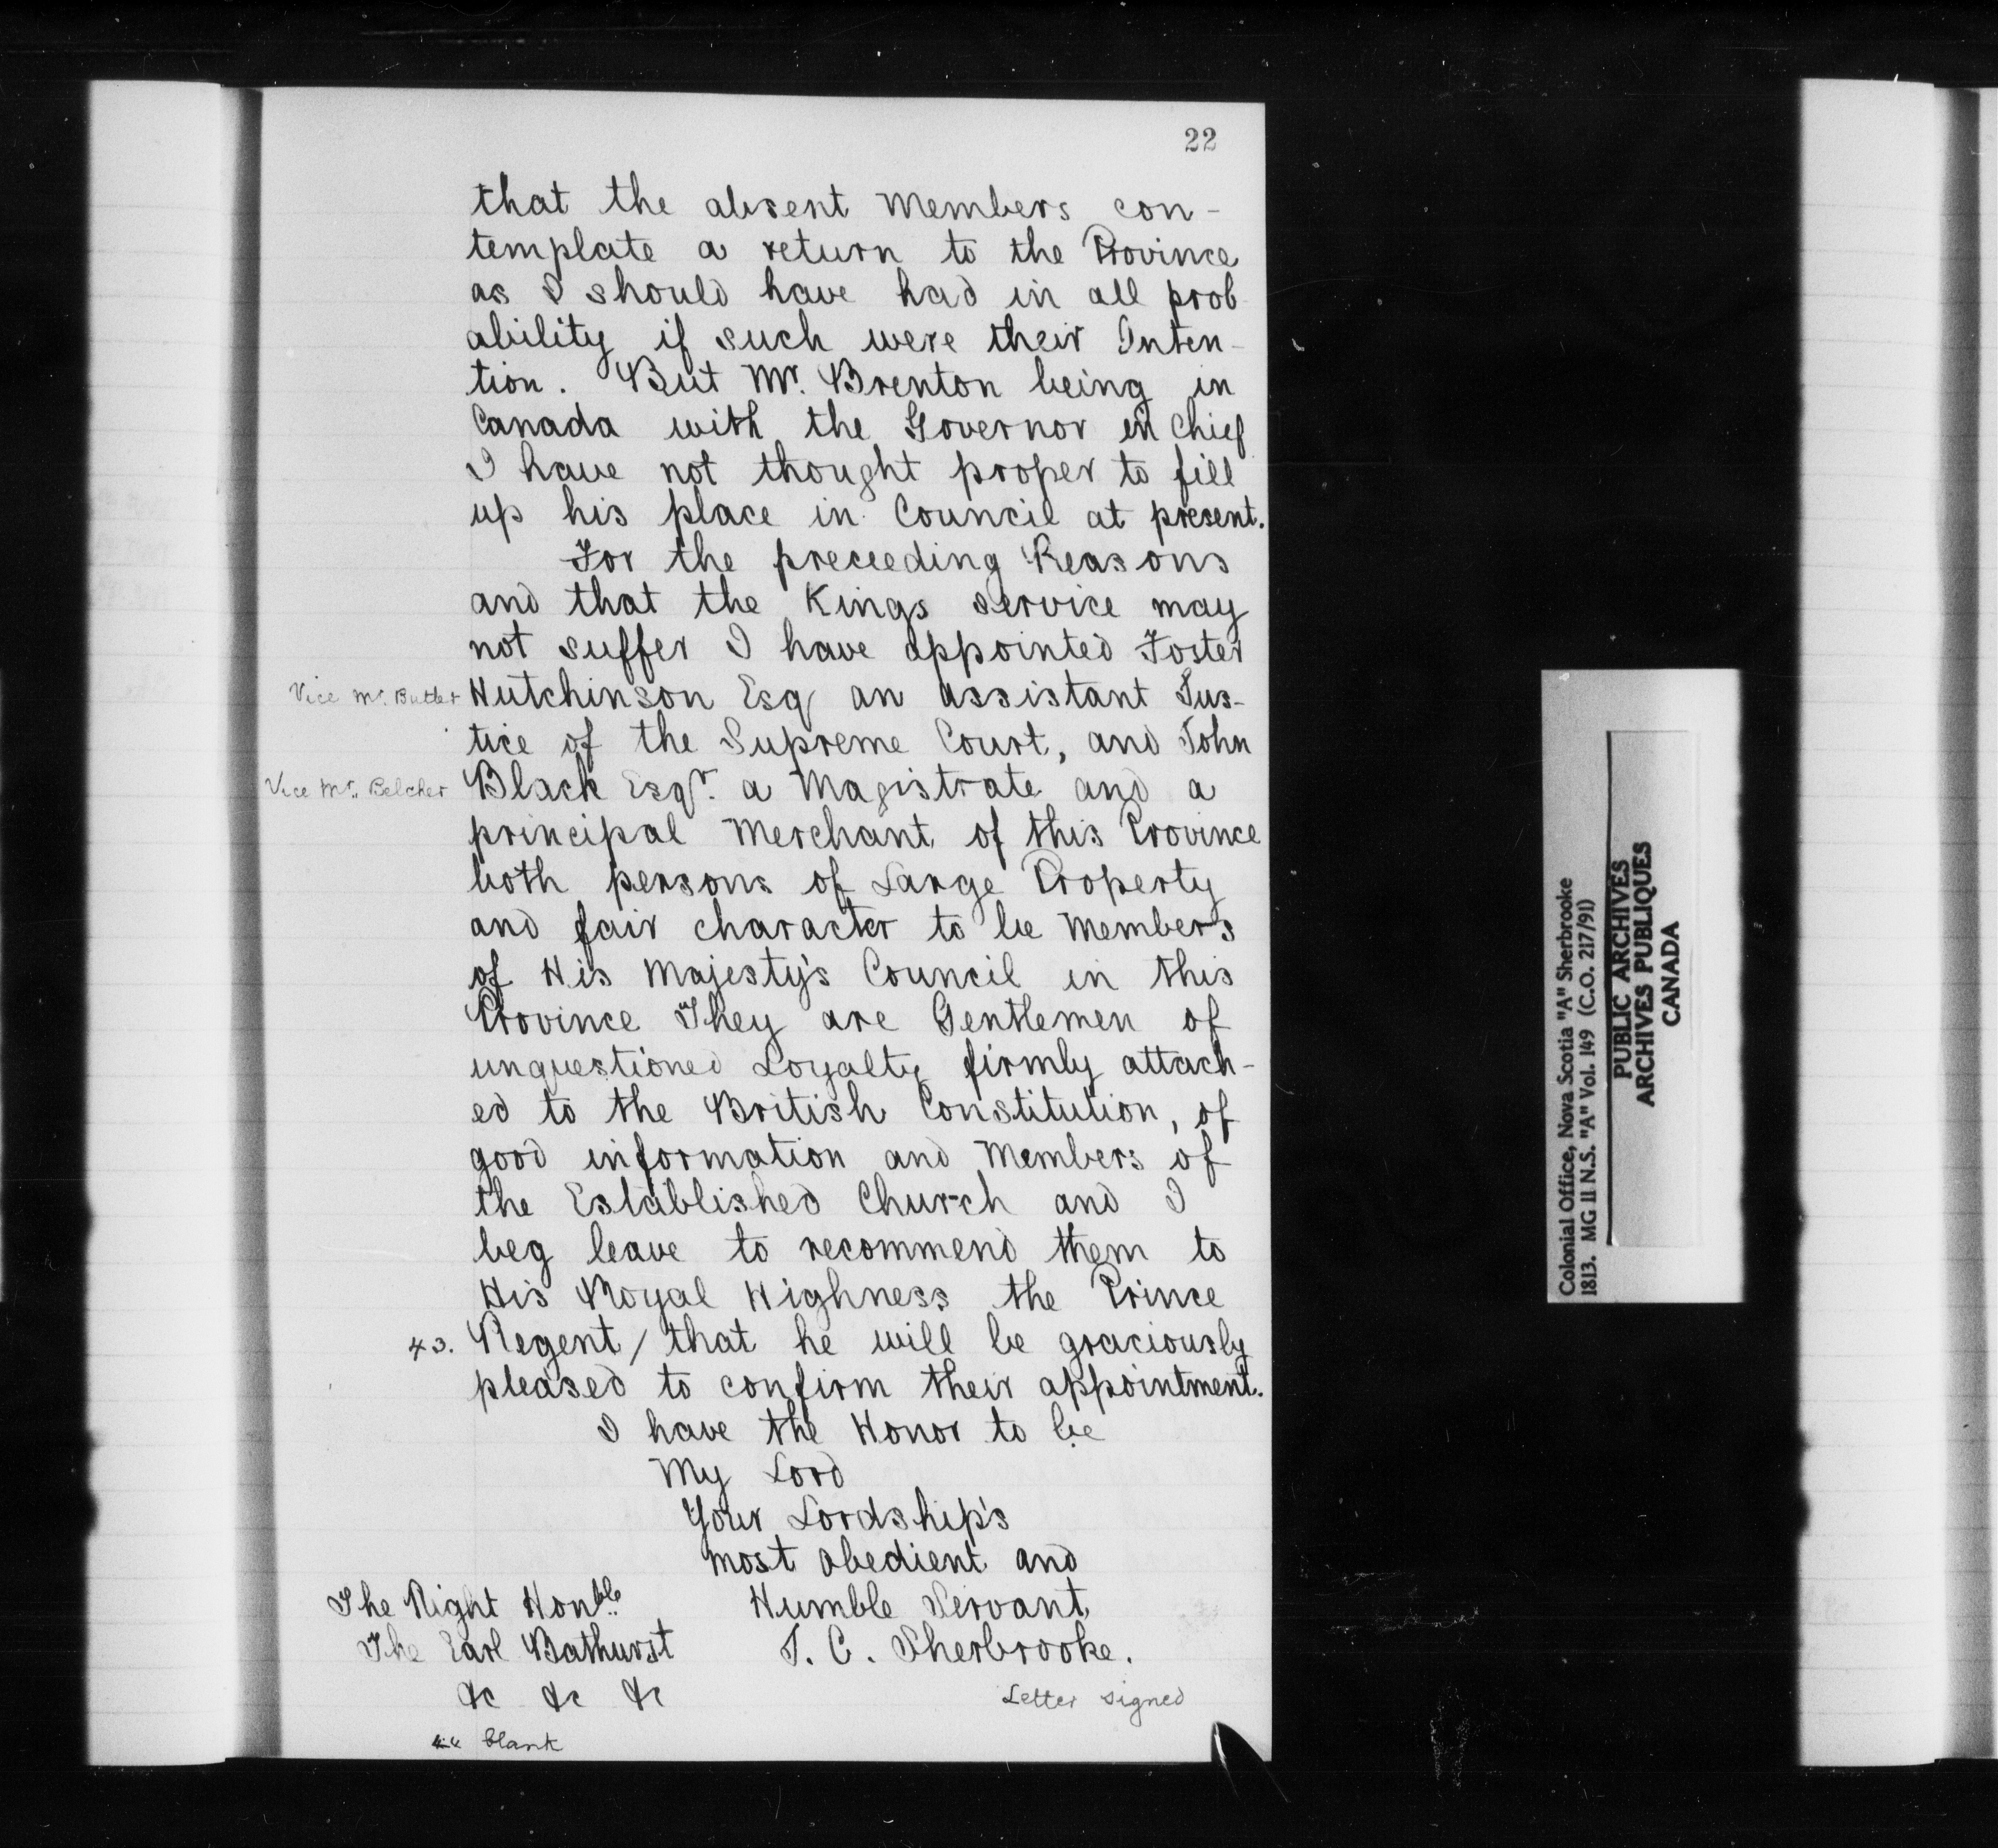 22
that the absent Members con-
template a return to the Province
as I should have had in all prob
ability if such were their Inten-
tion. But Mr. Brenton being in
Canada with the Governor in Chief
I have not thought proper to fill
up his place in Council at present.
For the preceeding Reasons
and that the Kings Service may
not suffer I have appointed Foster
Vice Mr. Butler Hutchinson Esq an assistant Jus-
tice of the Supreme Court, and John
Vice Mr. Belcher Black Esqr. a Magistrate and a
principal Merchant of this Province
both persons of Large Property
and fair character to be Members
of His Majesty's Council in this
Province They are Gentlemen of
unquestioned Loyalty firmly attach-
ed to the British Constitution, of
good information and Members of
the Established Church and I
beg leave to recommend them to
His Royal Highness the Prince
43. Regent / that he will be graciously
pleased to confirm their appointment.
I have the Honor to be
My Lord
Your Lordship's
most obedient and
The Right Honble. Humble Servant
The Earl Bathurst J. C. Sherbrooke.
&c &c &c Letter signed
44 blank
Colonial Office, Nova Scotia "A" Sherbrooke
1813. MG 11 N.S. "A" Vol. 149 (C.O. 217/91)
PUBLIC ARCHIVES
ARCHIVES PUBLIQUES
CANADA